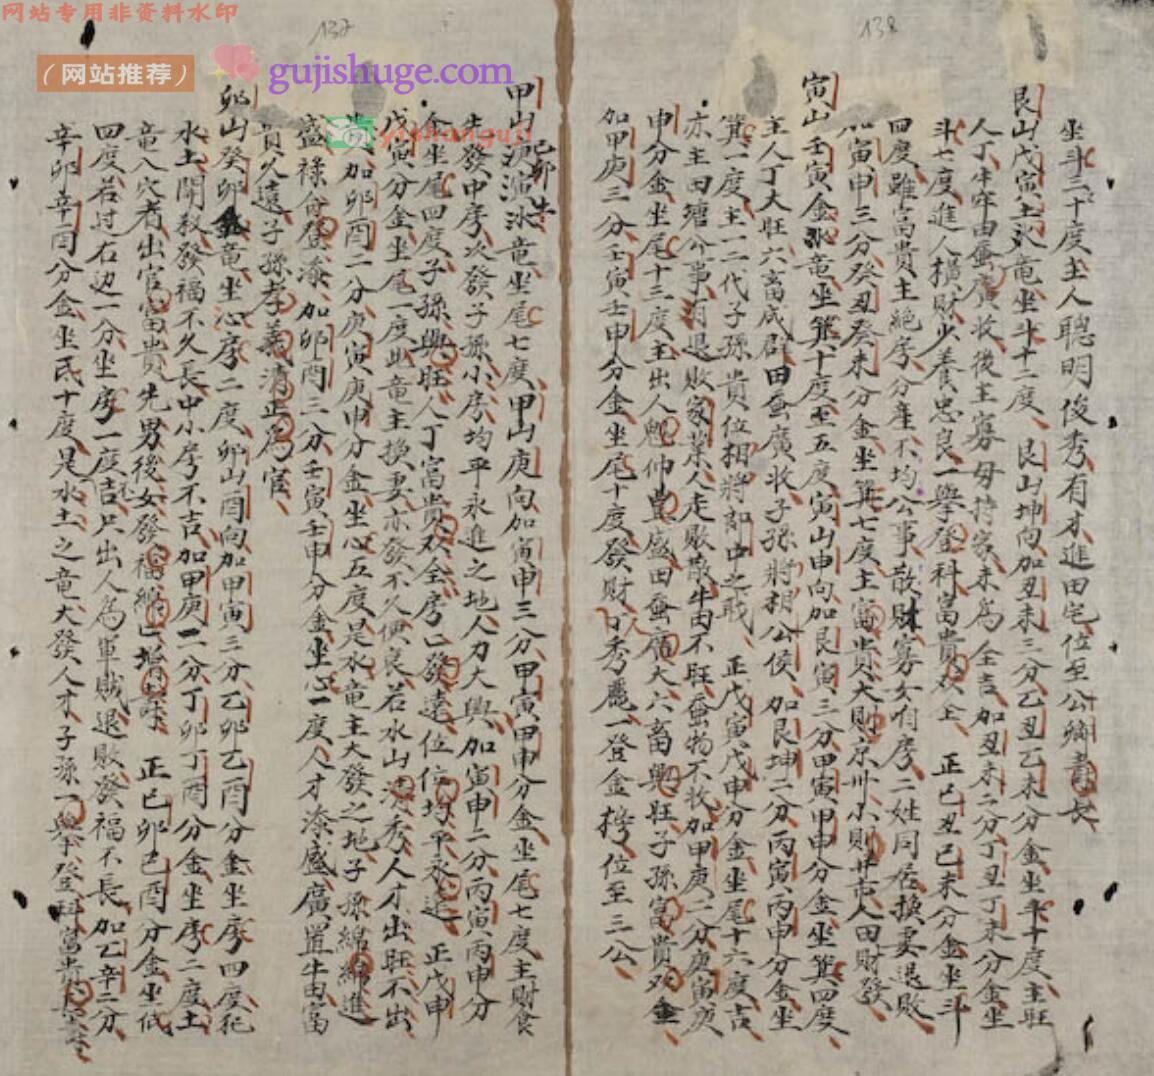 网站专用非资料水印
137
138
（网站推荐）
gujishuge.com
yiphanguji
坐斗三十度主人聰明俊秀有才進田宅位至公 壽長
艮山戊寅土 竜坐斗十二度、艮山坤向加丑未三分乙丑乙未分金坐斗十度主旺
人丁牛 由蚕廣收後主寡母持家未為全吉加丑未二分丁丑丁未分金坐
斗七度進人橫財少養忠良一舉登科富貴双全 正己丑己未分金坐斗
四度雖富貴主絕房分產不均公事散財寡女 房二姓同居換妻退敗
加寅申三分癸丑癸未分金坐箕七度主富貴大則京州小則 人田財發
寅山壬寅金 竜坐箕十度至五度寅山申向加艮寅三分甲寅甲申分金坐箕四度
主人丁大旺六畜成群田蚕廣收子孫將相公侯加艮坤二分丙寅丙申分金坐
箕一度主一二代子孫貴位相將郎中之 正戊寅戊申分金坐尾十六度吉
亦主田塘 事有退敗家業人走敗散牛田不旺蚕物不收加甲庚二分庚寅庚
申分金坐尾十三度主出人 仲豊盛田蚕廣大六畜興旺子孫富貴双全
加甲庚三分壬寅壬申分金坐尾十度發財 人秀麗一登金榜位至三公
甲山 竜坐尾七度甲山庚向加寅申三分甲寅甲申分金坐尾七度主財食
先發中房次發子孫小房均平永進之地人力大興加寅申二分丙寅丙申分
金坐尾四度子孫興旺人丁富貴双全房己發達位位均平永 正戊申
戊寅分金坐尾一度此竜主換妻亦發不久 良若水山清秀人才出旺不出
貴加卯酉二分庚寅庚申分金坐心五度是水竜主大發之地子孫綿綿進
盛祿位登 加卯酉三分壬寅壬申分金坐心一度人才添盛廣置牛田富
貴久遠子孫孝義清正為官
卯山癸卯金竜坐心房二度卯山酉向加甲寅三分乙卯乙酉分金坐房四度犯
水土開殺發福不久長中小房不吉加甲庚二分丁卯丁酉分金坐房二度土
竜入穴者出官富貴先男後女發福綿 正己卯己酉分金坐氐
四度若过右边一分坐房一度 吉只出人為軍賊退敗發福不長加乙辛二分
辛卯辛酉分金坐氐十度是水土之竜大發人才子孫一舉登科富貴